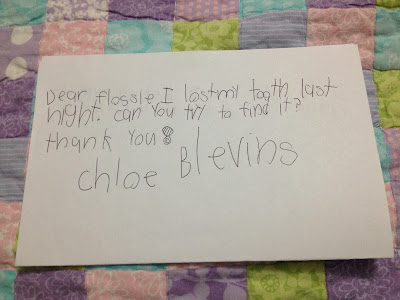 Dear flossie I lost my tooth last
night. can you try to find it?
thank you!
chloe Blevins